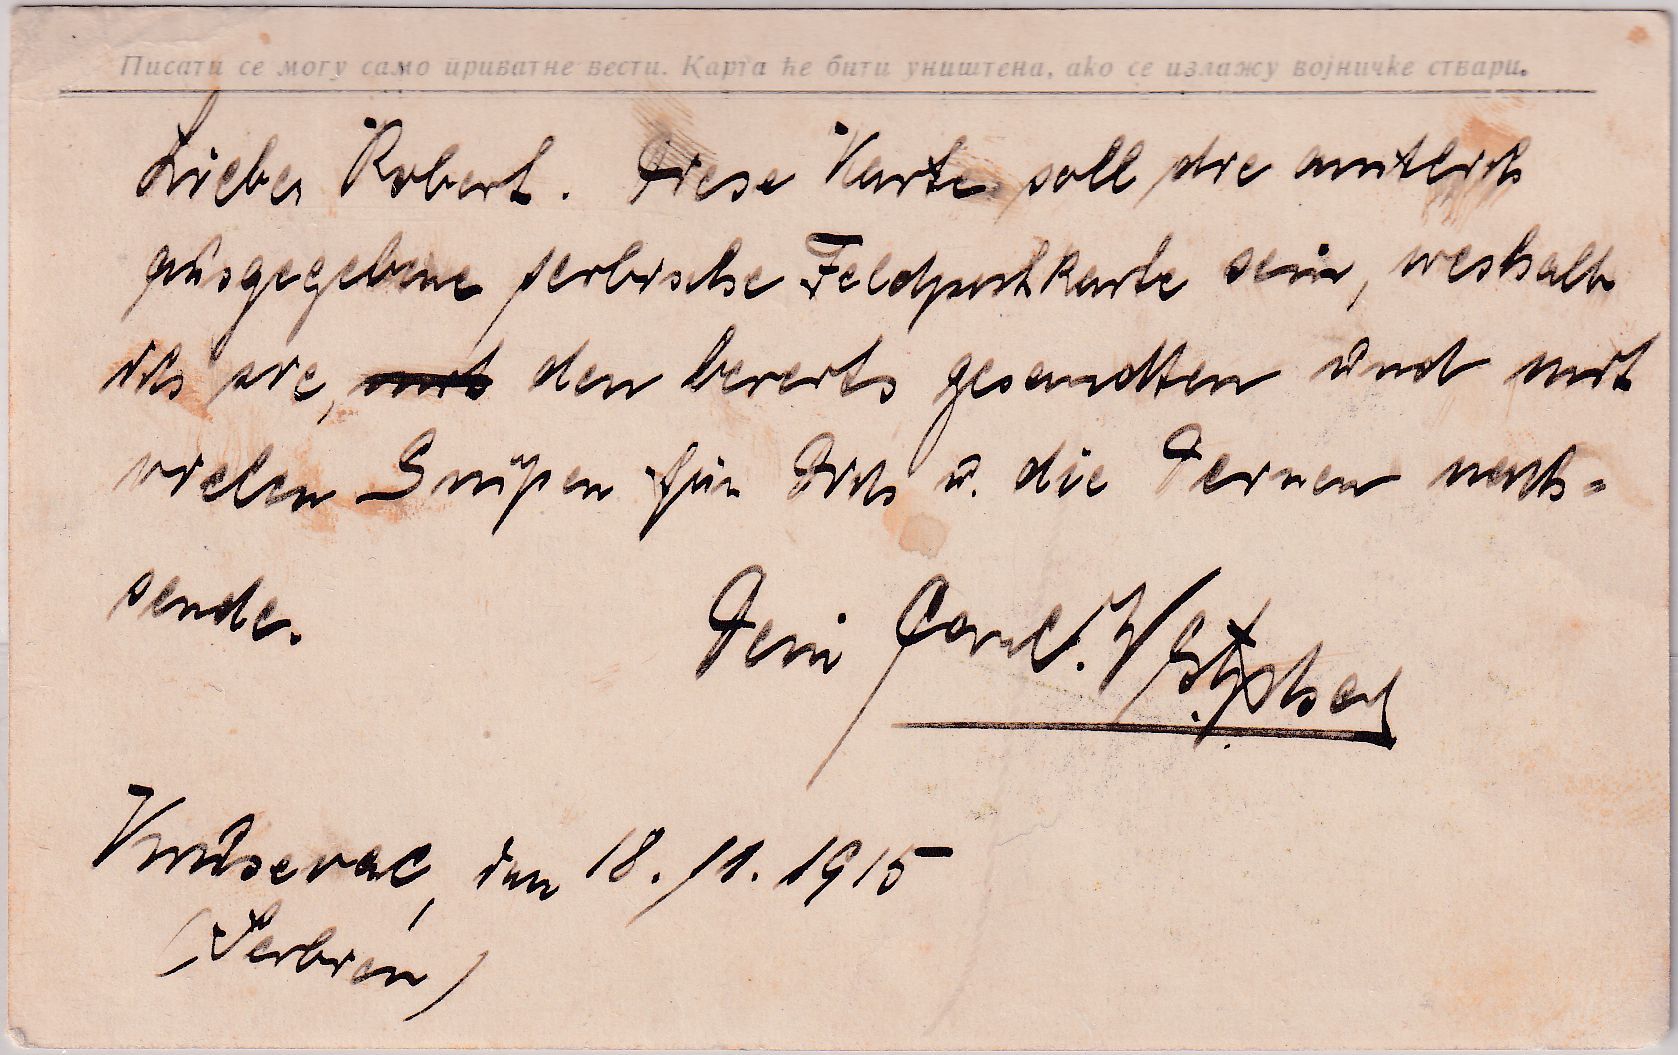 Писати се могу само приватне вести. Карта ће бити уништена, ако се излажу војничке ствари.
Lieber Robert. Diese Karte soll die amtlich
ausgegebene serbische Feldpostkarte sein, weshalb
ich sie, den bereits gesandten und mit
vielen Grüßen für Dich u. die Deinen nach-
sende.
Dein Carl.
Krusevac, den 18. 11. 1915
(Serbien)